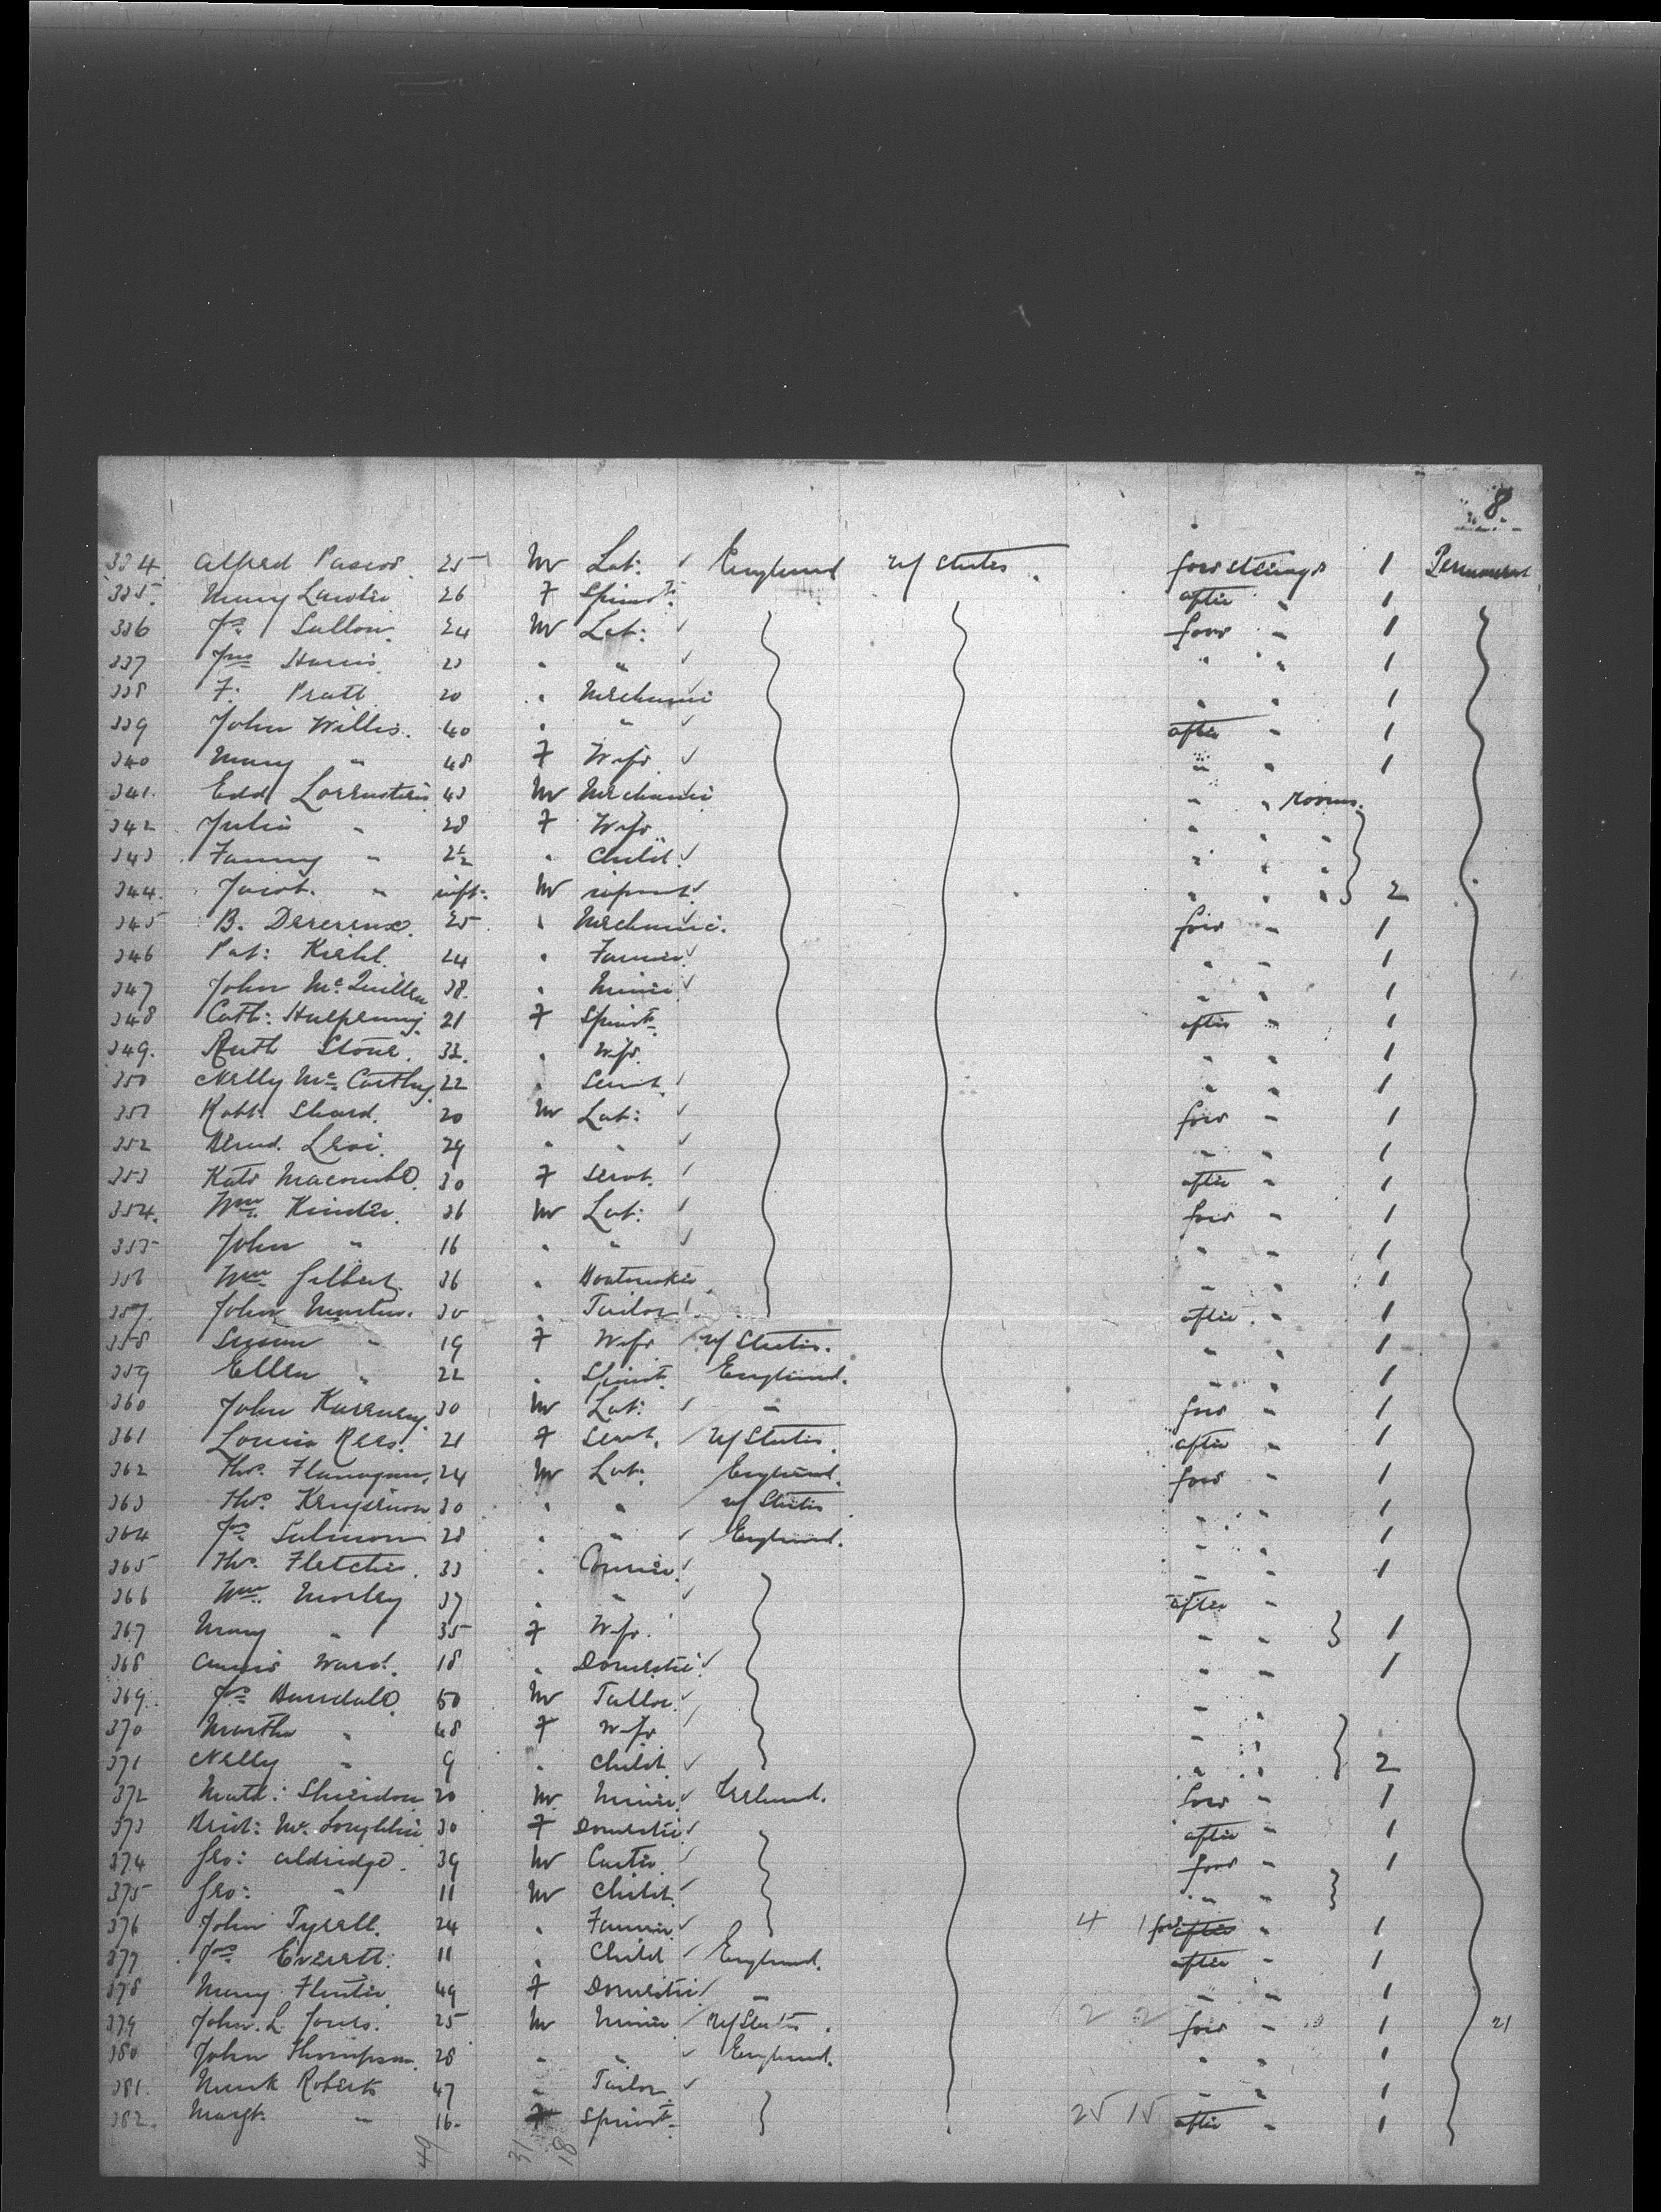 8
334. Alfred Pascoe 25 M Lab: ✓ England U/States. fore steerage 1 Permanent
335. Mary Lawler 26 F Spinst: after " 1
336 Jas Sallow. 24 M Lab: ✓ fore " 1
337 Jno Harris. 23 " " ✓ " " 1
338 F. Pratt 20 " Mechanic " " 1
339 John Willis. 40 " " ✓ after " 1
340 Mary " 48 F Wife ✓ " " 1
341. Edd 43 M Mechanic " " rooms.
342 Julia " 28 F Wife " " "
343 Fanny " 2½ " Child. ✓ " " "
344. Jacob. " inft. M infant. ✓ " " " } 2
345 B. Devereux. 25 " Mechanic. fore " 1
346 Pat: 24 " Farmer. ✓ " " 1
347 John McQuillen 38. " Miner ✓ " " 1
348 Cath: Halpenny. 21 F Spinst. after " 1
349. Ruth Stone. 33. " Wife. " " 1
350 Nelly McCarthy. 22 " Servt. ✓ " " 1
351 Robt. Shard. 20 M Lab: ✓ fore " 1
352 Levi. 29 " " ✓ " " 1
353 Kate Macombe. 30 F Servt. ✓ after " 1
354. Wm. Kinder. 36 M Lab: ✓ fore " 1
355 John " 16 " " ✓ " " 1
356 Wm Gilbert. 36 " " " 1
357. John Martin. 30 " Tailor ✓ after " 1
358 Susan " 19 F Wife ✓ U/States. " " 1
359 Ellen " 22 " Spinst. England. " " 1
360 John Kearney. 30 M Lab: ✓ " fore " 1
361 Louisa Rees. 21 F Servt. ✓ U/States. after " 1
362 Thos. Flanagan. 24 M Lab. England. fore " 1
363 Thos. 30 " " ✓ U/States " " 1
364 Jas Salmon 28 " " ✓ England. " " 1
365 Thos. Fletcher. 33 " ✓ " " 1
366 Wm. Morley 37 " " ✓ after "
367 Mary " 35 F Wife. " " } 1
368 Annie Ward. 18 " Domestic. ✓ " " 1
369. Jas 50 M ✓ " "
370 Martha " 48 F Wife ✓ " "
371 Nelly " 9 " Child ✓ " " } 2
372 Matt: Sheridan 20 M. Miner ✓ Ireland. fore " 1
373 Brid: McLoughlin 30 F Domestic. ✓ after " 1
374 Geo: Aldridge. 39 M ✓ fore " 1
375 Geo: " 11 M Child ✓ " " }
376 John Tyrell. 24 " Farmer. ✓ 4 1 fore after " 1
377 Jas Everett. 11 " Child ✓ England. after " 1
378 Mary 49 F Domestic ✓ " " " 1
379 John. L. Jones. 25 M Miner ✓ U/States. 2 2 fore " 1 21
380 John Thompson. 28 " " ✓ England. " " 1
381. Mark Roberts 47 " Tailor ✓ " " 1
382. Margt. " 16. F Spinst. 25 15 after " 1
49 31 18